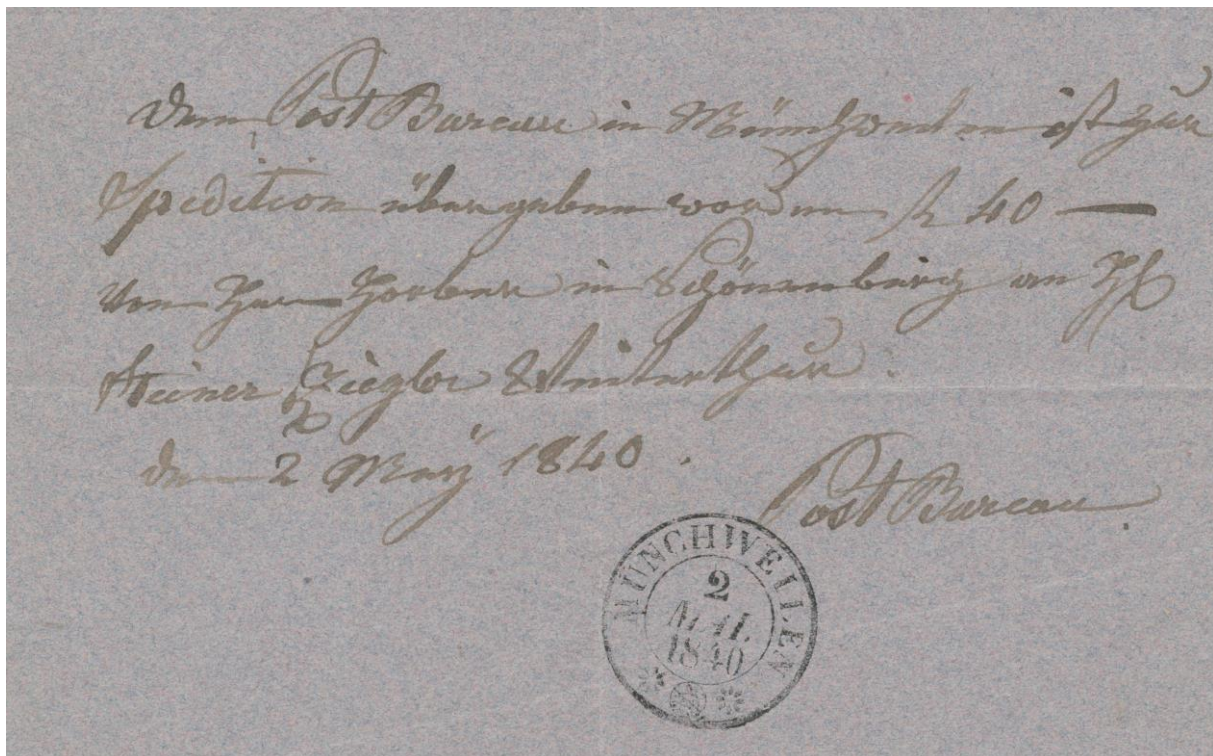 Dem Post Bureau in Münchweilen ist zur
Spedition übergeben worden f 40 —
von Herr in Schönenberg an HH
Steiner Ziegler Winterthur.
den 2 May 1840.
Post Bureau
MÜNCHWEILEN
2
MAI.
1840